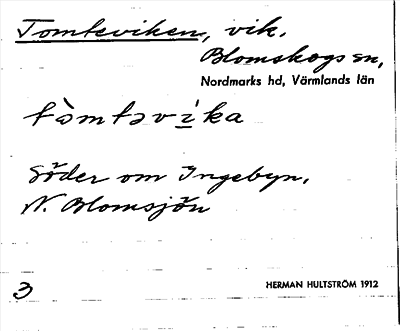 Tomteviken, vik.
Blomskogs sn,
Nordmarks hd, Värmlands län
tòmtəvi̱ka
Söder om Ingebyn,
N. Blomsjön
3
HERMAN HULTSTRÖM 1912